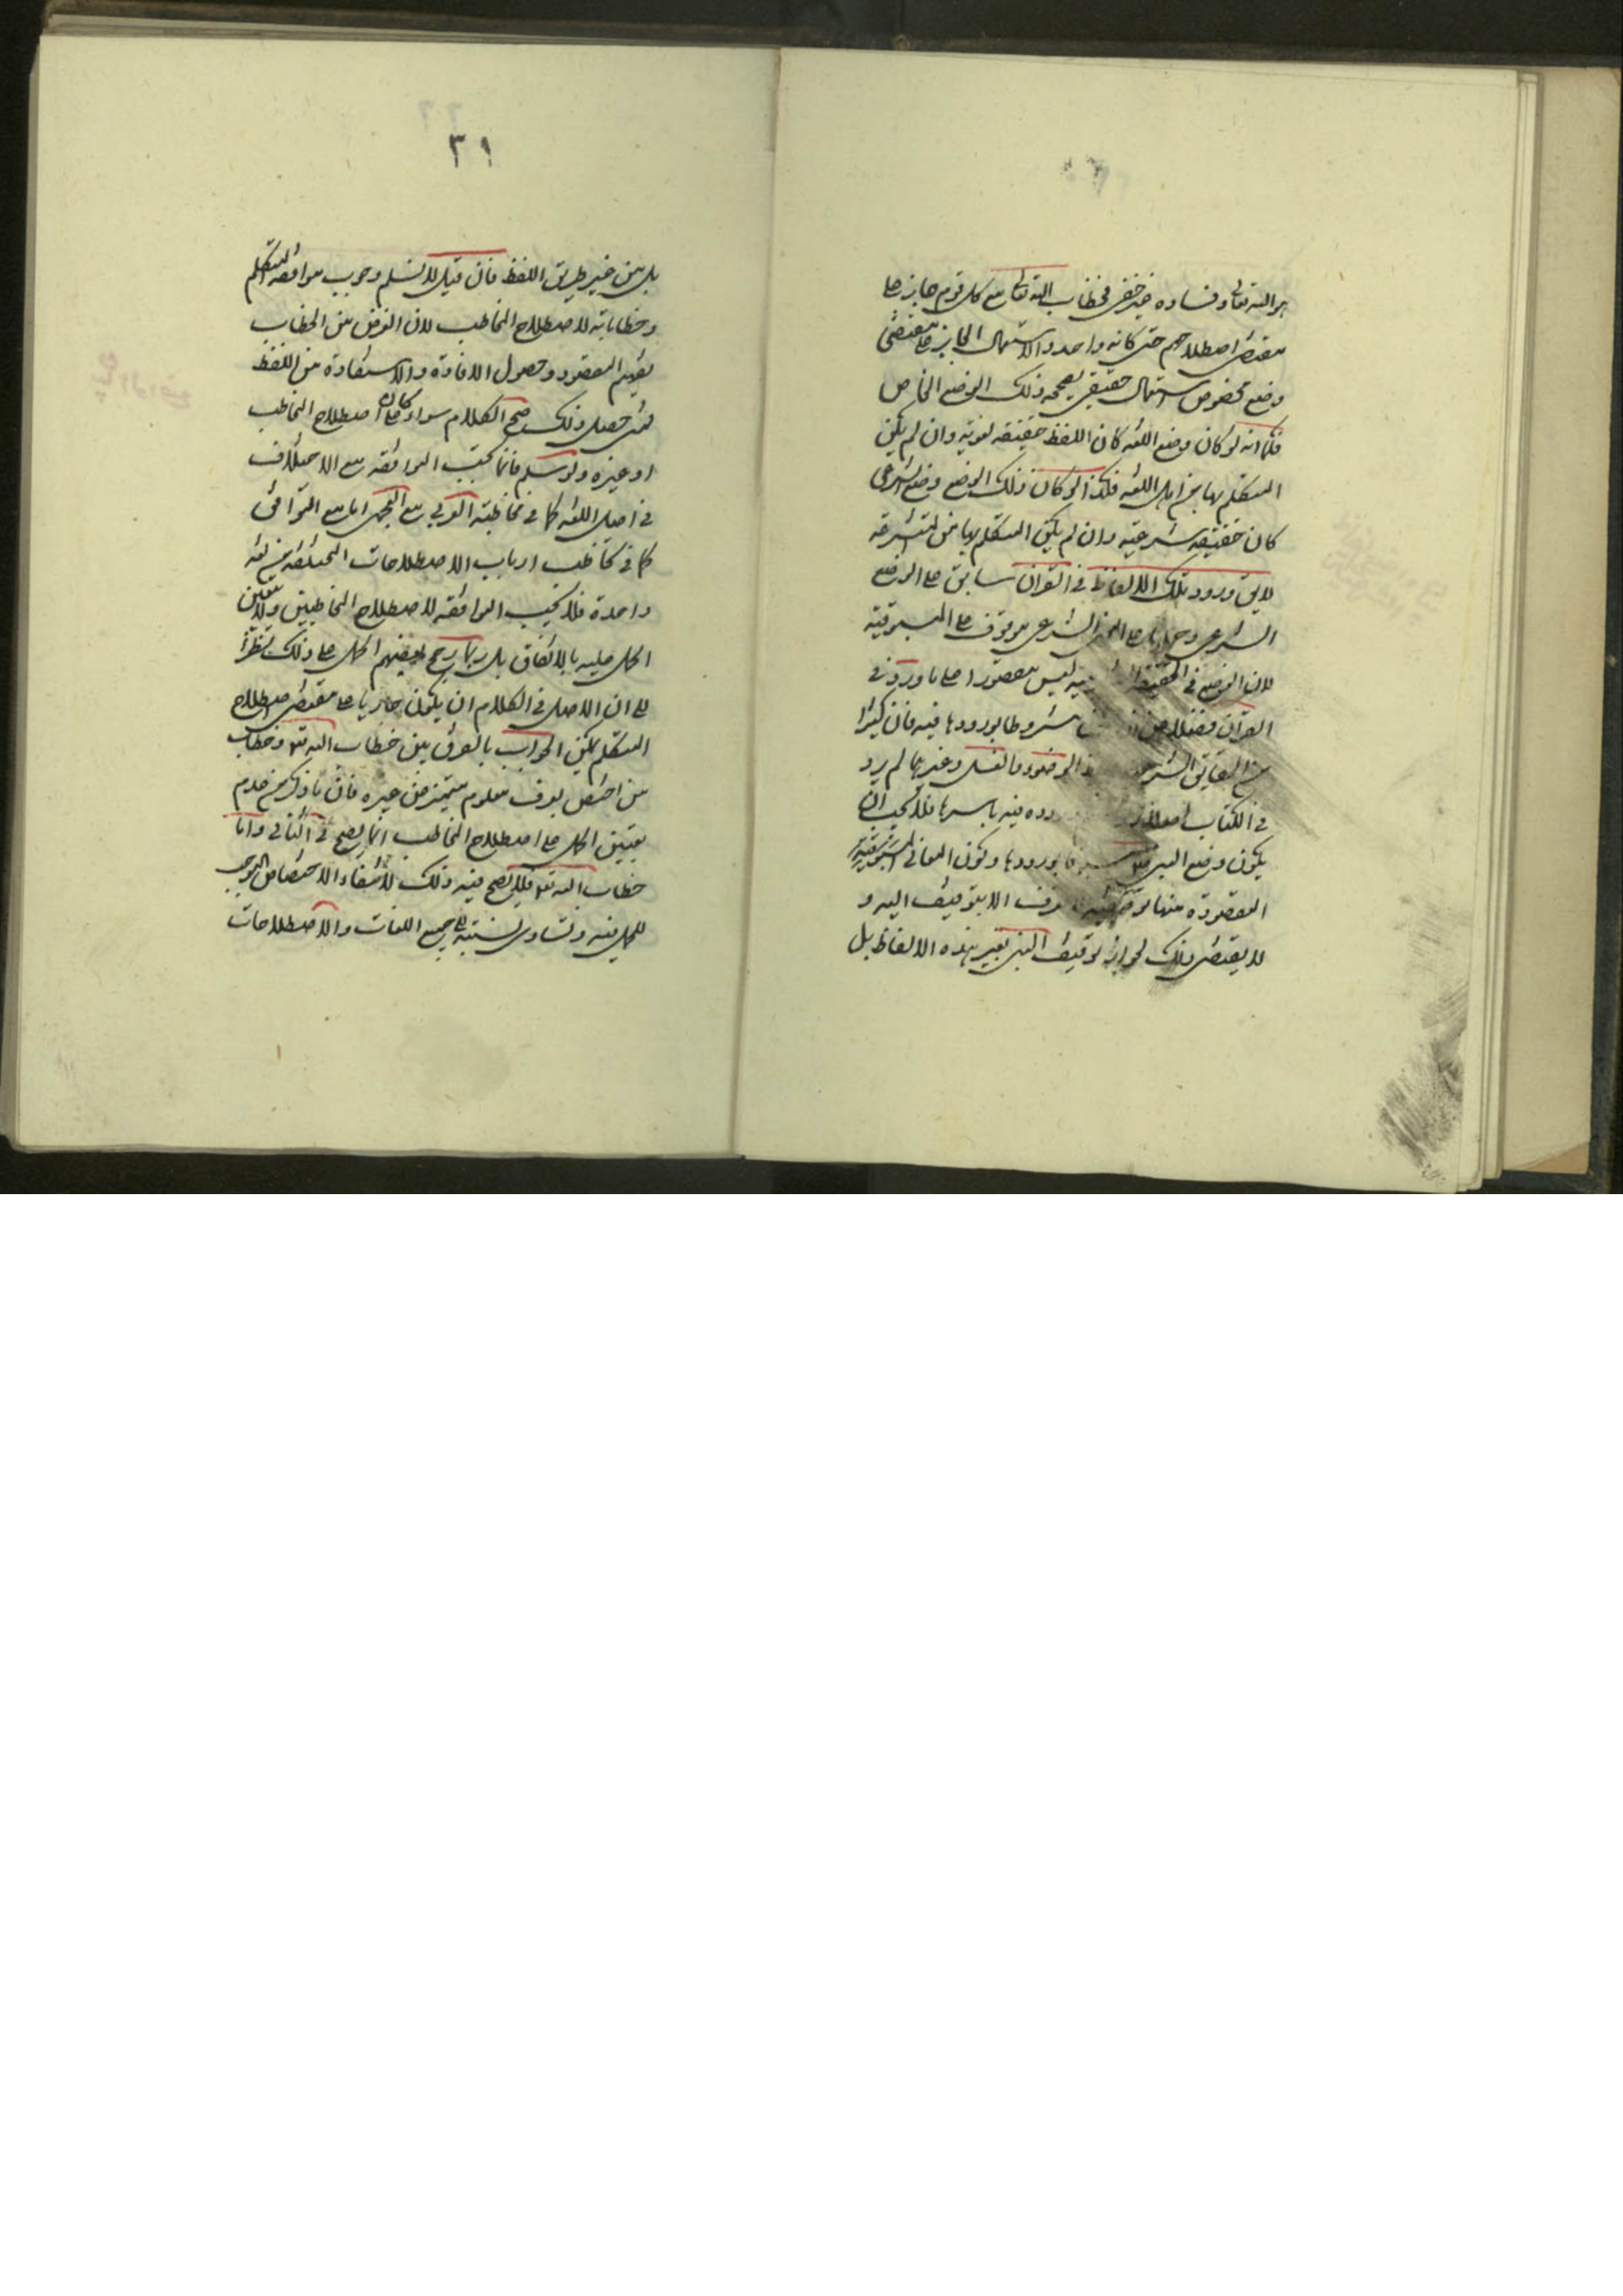 هو الله تعالى وفساده غير خفى فخطاب الله تعالى مع كل قوم جار على
مقتضى اصطلاحهم حتى كانه واحد والاستعمال الجارى على مقتضى
وضع مخصوص استعمال حقيقى يصححه ذلك الوضع الخاص
فكما انه لو كان وضع اللغه كان اللفظ حقيقه لغويه وان لم يكن
المتكلم بها من اهل اللغه فكذا لو كان ذلك الوضع وضع الشرعى
كان حقيقه شرعيه وان لم يكن المتكلم بها من المتشرعه
لا يق ورود تلك الالفاظ فى القران سابق على الوضع
الشرعى وحملها على المعنى الشرعى موقوف على المسبوقيه
لان الوضع فى الحقيقه الشرعيه ليس مقصورا على ما ورد فى
القران فضلا عن مشروطا بورودها فيه فان كثيرا
من الحقايق الشرعيه كالوضوء والغسل وغيرهما لم يرد
فى الكتاب اصلا وروده فيه باسرها فلا يجب ان
يكون وضع النبى مسبوقا بورودها وكون المعانى الشرعيه
المقصودة منها توقيفيه لا تعرف الا بتوقيف اليه و
لا يقتضى ذلك لجواز توقيف النبى بغير هذه الالفاظ بل
٣١
بل من غير طريق اللفظ فان قيل لا نسلم وجوب موافقه المتكلم
وخطاباته لاصطلاح المخاطب لان الغرض من الخطاب
تفهيم المقصود وحصول الافادة والاستفادة من اللفظ
فمتى حصل ذلك صح الكلام سواء كان على اصطلاح المخاطب
او غيره ولو سلم فانما تجب الموافقه مع الاختلاف
فى اصل اللغه كما فى مخاطبه العربى مع العجمى اما مع التوافق
كما فى تخاطب ارباب الاصطلاحات المختلفه من لغه
واحدة فلا تجب الموافقه لاصطلاح المخاطبين ولا يتعين
الحمل عليه بالاتفاق بل ربما رجح بعضهم الحمل على ذلك نظرا
الى ان الاصل فى الكلام ان يكون جاريا على مقتضى اصطلاح
المتكلم يمكن الجواب بالفرق بين خطاب الله تعه وخطاب
من اختص بعرف معلوم متميز عن غيره فان ما ذكر من عدم
تعيين الحمل على اصطلاح المخاطب انما يصح فى الثانى واما
خطاب الله تعه فلا يصح فيه ذلك لانتفاء الاختصاص الموجب
للحمل فيه وتساوى نسبته الى جميع اللغات والاصطلاحات